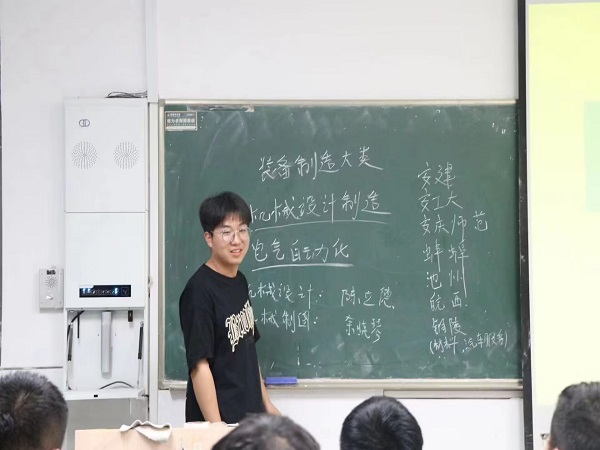 装备制造大类
机械设计制造
电气自动化
机械设计：陈立德
械制图：余晓琴
安建
安工大
安庆师范
蚌埠
池州
皖西
铜陵